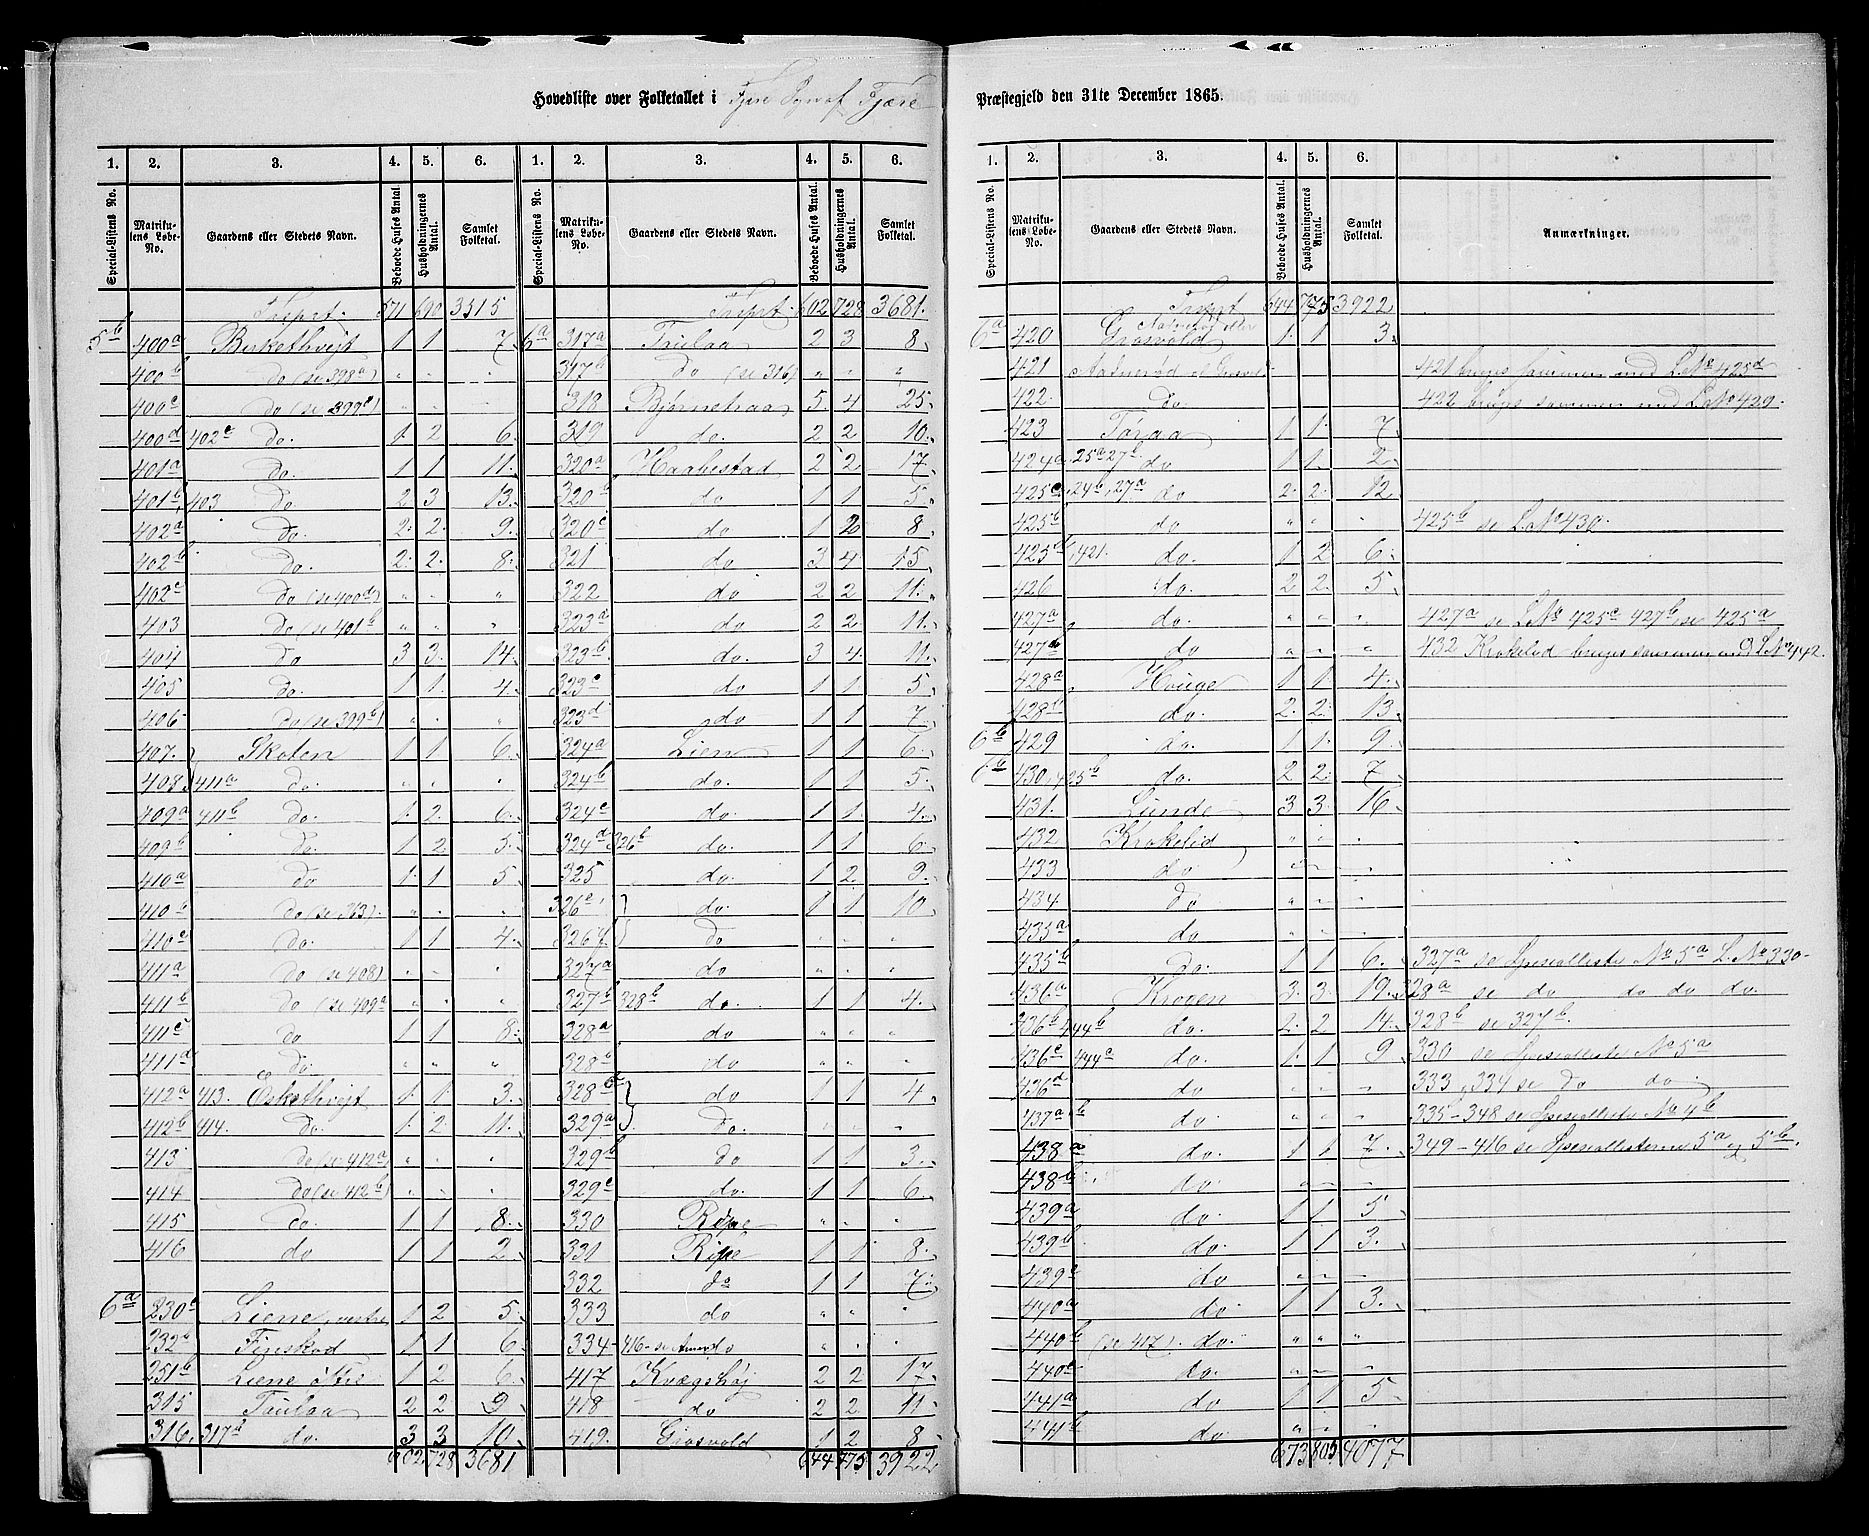 Hovedliste over Folketallet i Fjære Sogn af Fjære
Præstegjeld den 31te December 1865.
1. 2. 3. 4. 5. 6. 1. 2. 3. 4. 5. 6.
Special-Listens No. Matrikulens Løbe-No. Gaardens eller Stedets Navn. Beboede Huses Antal. Husholdningernes Antal. Samlet Folketal. Special-Listens No. Matrikulens Løbe-No. Gaardens eller Stedets Navn. Beboede Huses Antal. Husholdningernes Antal. Samlet Folketal.
Trspt. 571 690 3515
5b 400a Birkethvejt 1 1 7
400b do (se 398a) " " "
400c do (se 399c) " " "
400d 402c do. 1 2 6
401a do. 1 1 11
401b 403 do. 2 3 13
402a do. 2 2 9
402b do. 2 2 8
402c do (se 400d) " " "
403 do (se 401b) " " "
404 do 3 3 14
405 do 1 1 4
406 do (se 399b) " " "
407 Skoten 1 1 6
408 411a do. " " "
409a 411b do. 1 2 6
409b do. 1 2 5
410a do 1 1 5
410b do (se 363). " " "
410c do. 1 1 4
411a do (se 408) " " "
411b do (se 409a " " "
411c do 1 1 8
411d do. " " "
412a 413. Eskethvejt 1 1 3
412b 414. do. 1 2 11
413 do (se 412a) " " "
414 do (se 412b) " " "
415 do. 1 1 8
416 do 1 1 2
6a 230c Liene, vestre 1 2 5
232b Finskod 1 1 6
251b Liene østre 1 2 6
315 Taulaa 2 2 9
316, 317a do. 3 3 10
602 728 3681
Trspt. 602 728 3681
6a 317a Trulaa 2 3 8
317b do (se 316) " " "
318 Bjørnetraa 5 4 25
319 do. 2 2 10
320a Haabestad 2 2 17
320b do 1 1 5
320c do 1 2 8
321 do 3 4 15
322 do 2 2 11
323a do 2 2 11
323b do. 3 4 11
323c do 1 1 5
323d do 1 1 7
324a Lien 1 1 6
324b do. 1 1 5
324c do. 1 1 4
324d 326b do. 1 1 6
325 do. 1 2 9
326c do. 1 1 10
326d do " " "
327a do " " "
327b 328b do. 1 1 4
328a do " " "
328b do " " "
328c do 1 1 4
329a do. " " "
329b do 1 1 3
329c do. 1 1 6
330 Ripe " " "
331 Ripe 1 1 8
332 do 1 1 7
333 do " " "
334- 416- se Anm do " " "
417 Kvægshøj 2 2 17
418 do 2 2 11
419. Grosvold 1 2 8
644 775 3922
1. 2. 3. 4. 5. 6.
Special-Listens No. Matrikulens Løbe-No. Gaardens eller Stedets Navn. Beboede Huses Antal. Husholdningernes Antal. Samlet Folketal. Anmærkninger.
Trspt 644 775 3922
6a 420 Grosvold 1 1 3
421 421 bruges sammen med L.No 425d
422 do. 422 bruges sammen med L.No 429.
423 Tøraa 1 1 7
424a 25a 27b do 1 1 2
425c, 24b, 27a do 2 2 12
425b do " " " 425b se L.No 430.
425d, 421. do. 1 2 6
426 do. 2 2 5
427a do. " " " 427a se L.No 425c 427b, se 425a
427b do " " " 432 Krokelid bruges sammen med L.No 442.
428a Houge 1 1 4
428b do. 2 2 13
6b 429 do. 1 1 9
430, 425b do. 2 2 7
431. Lunde 3 3 16
432 Krokelid " " "
433 do " " "
434 do " " "
435a do " " "
435b do. 1 1 6 327a se Speciallisten No 5a L.No 330
436a Kroven 3 3 19 328a se do do do do.
436b 444b do. 2 2 14 328b se 327b.
436c 444a do. 1 1 9 330 se Speciallisten No 5a
436d do " " " 333, 334 se do do
437a b do " " " 335-348 se Speciallisten No 4b
438a do 1 1 7 349-416 se Speciallisterne 5a og 5b.
438b do. " " "
439a do. 1 1 5
439b do. 1 1 3
439c do " " "
440a do. 1 1 3
440b (se 417). do. " " "
440c do. " " "
441a do 1 1 5
441b do. " " "
673 805 4077